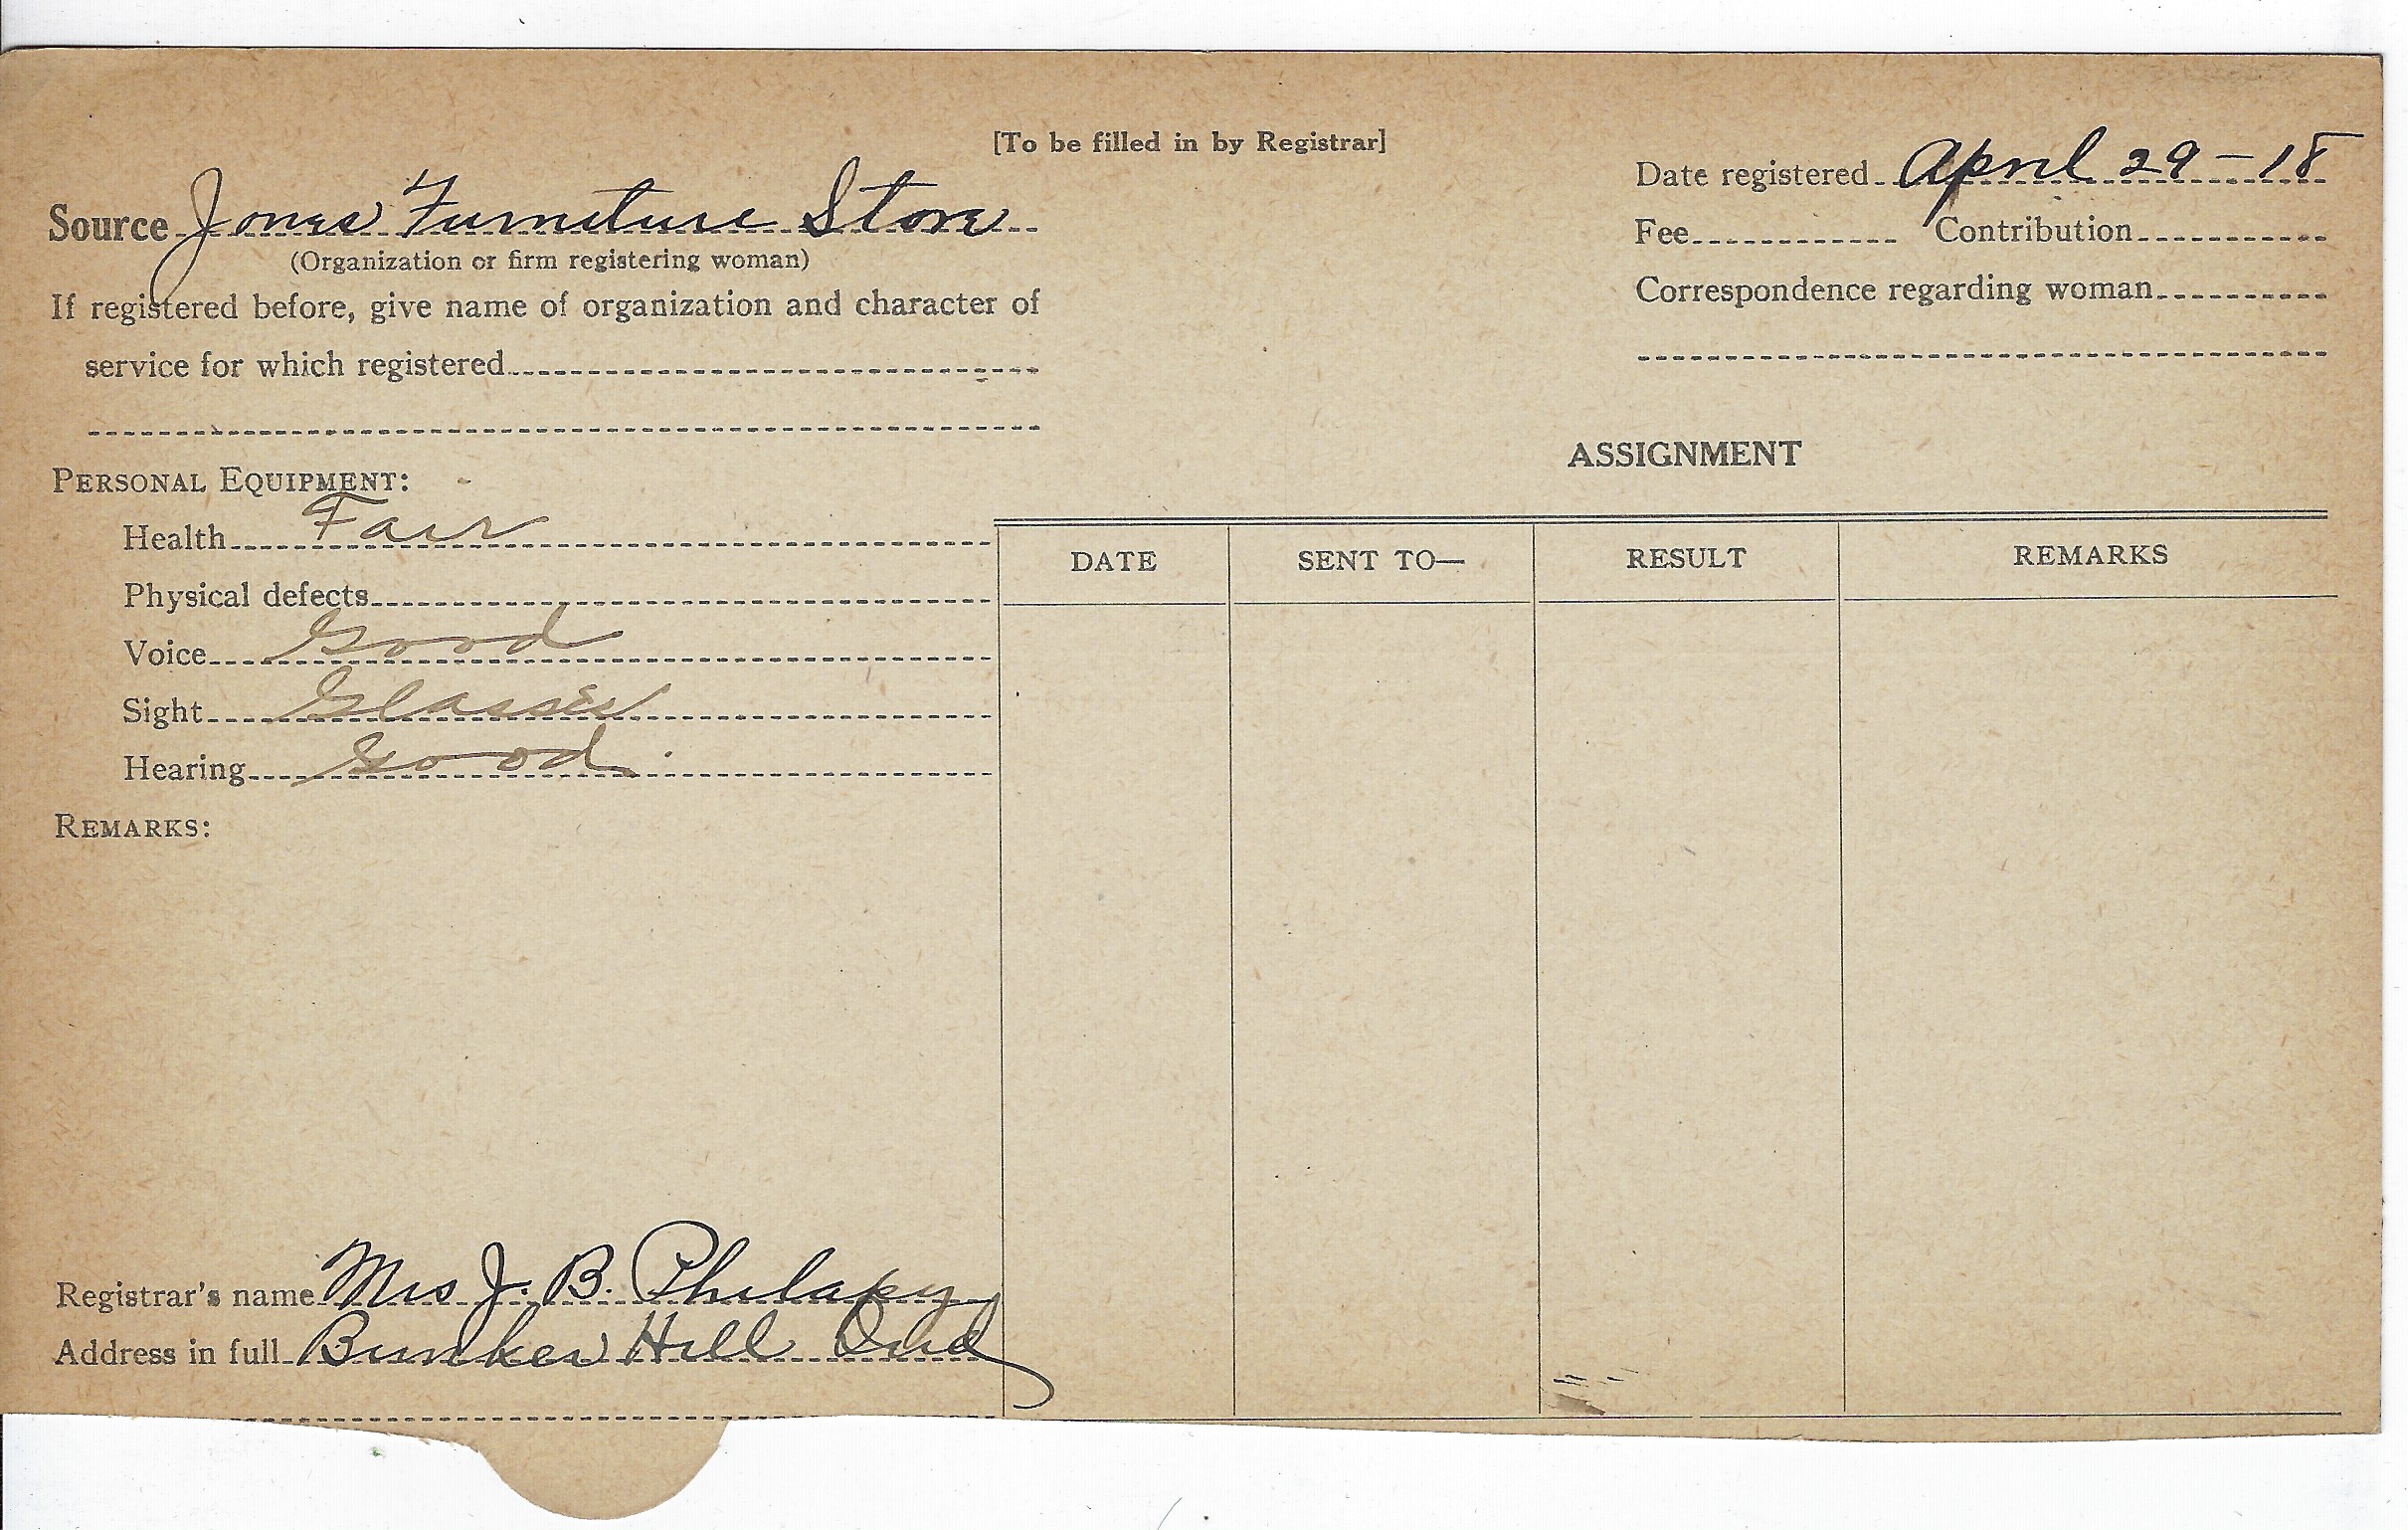 [To be filled in by Registrar]
Source Jones Furniture Store
(Organization or firm registering woman)
If registered before, give name of organization and character of
service for which registered
Date registered April 29-18
Fee Contribution
Correspondence regarding woman
PERSONAL EQUIPMENT:
Health Fair
Physical defects
Voice Good
Sight Glasses
Hearing Good
REMARKS:
Registrar's name Mrs J. B. Philapy
Address in full Bunker Hill Ind
ASSIGNMENT
DATE SENT TO— RESULT REMARKS